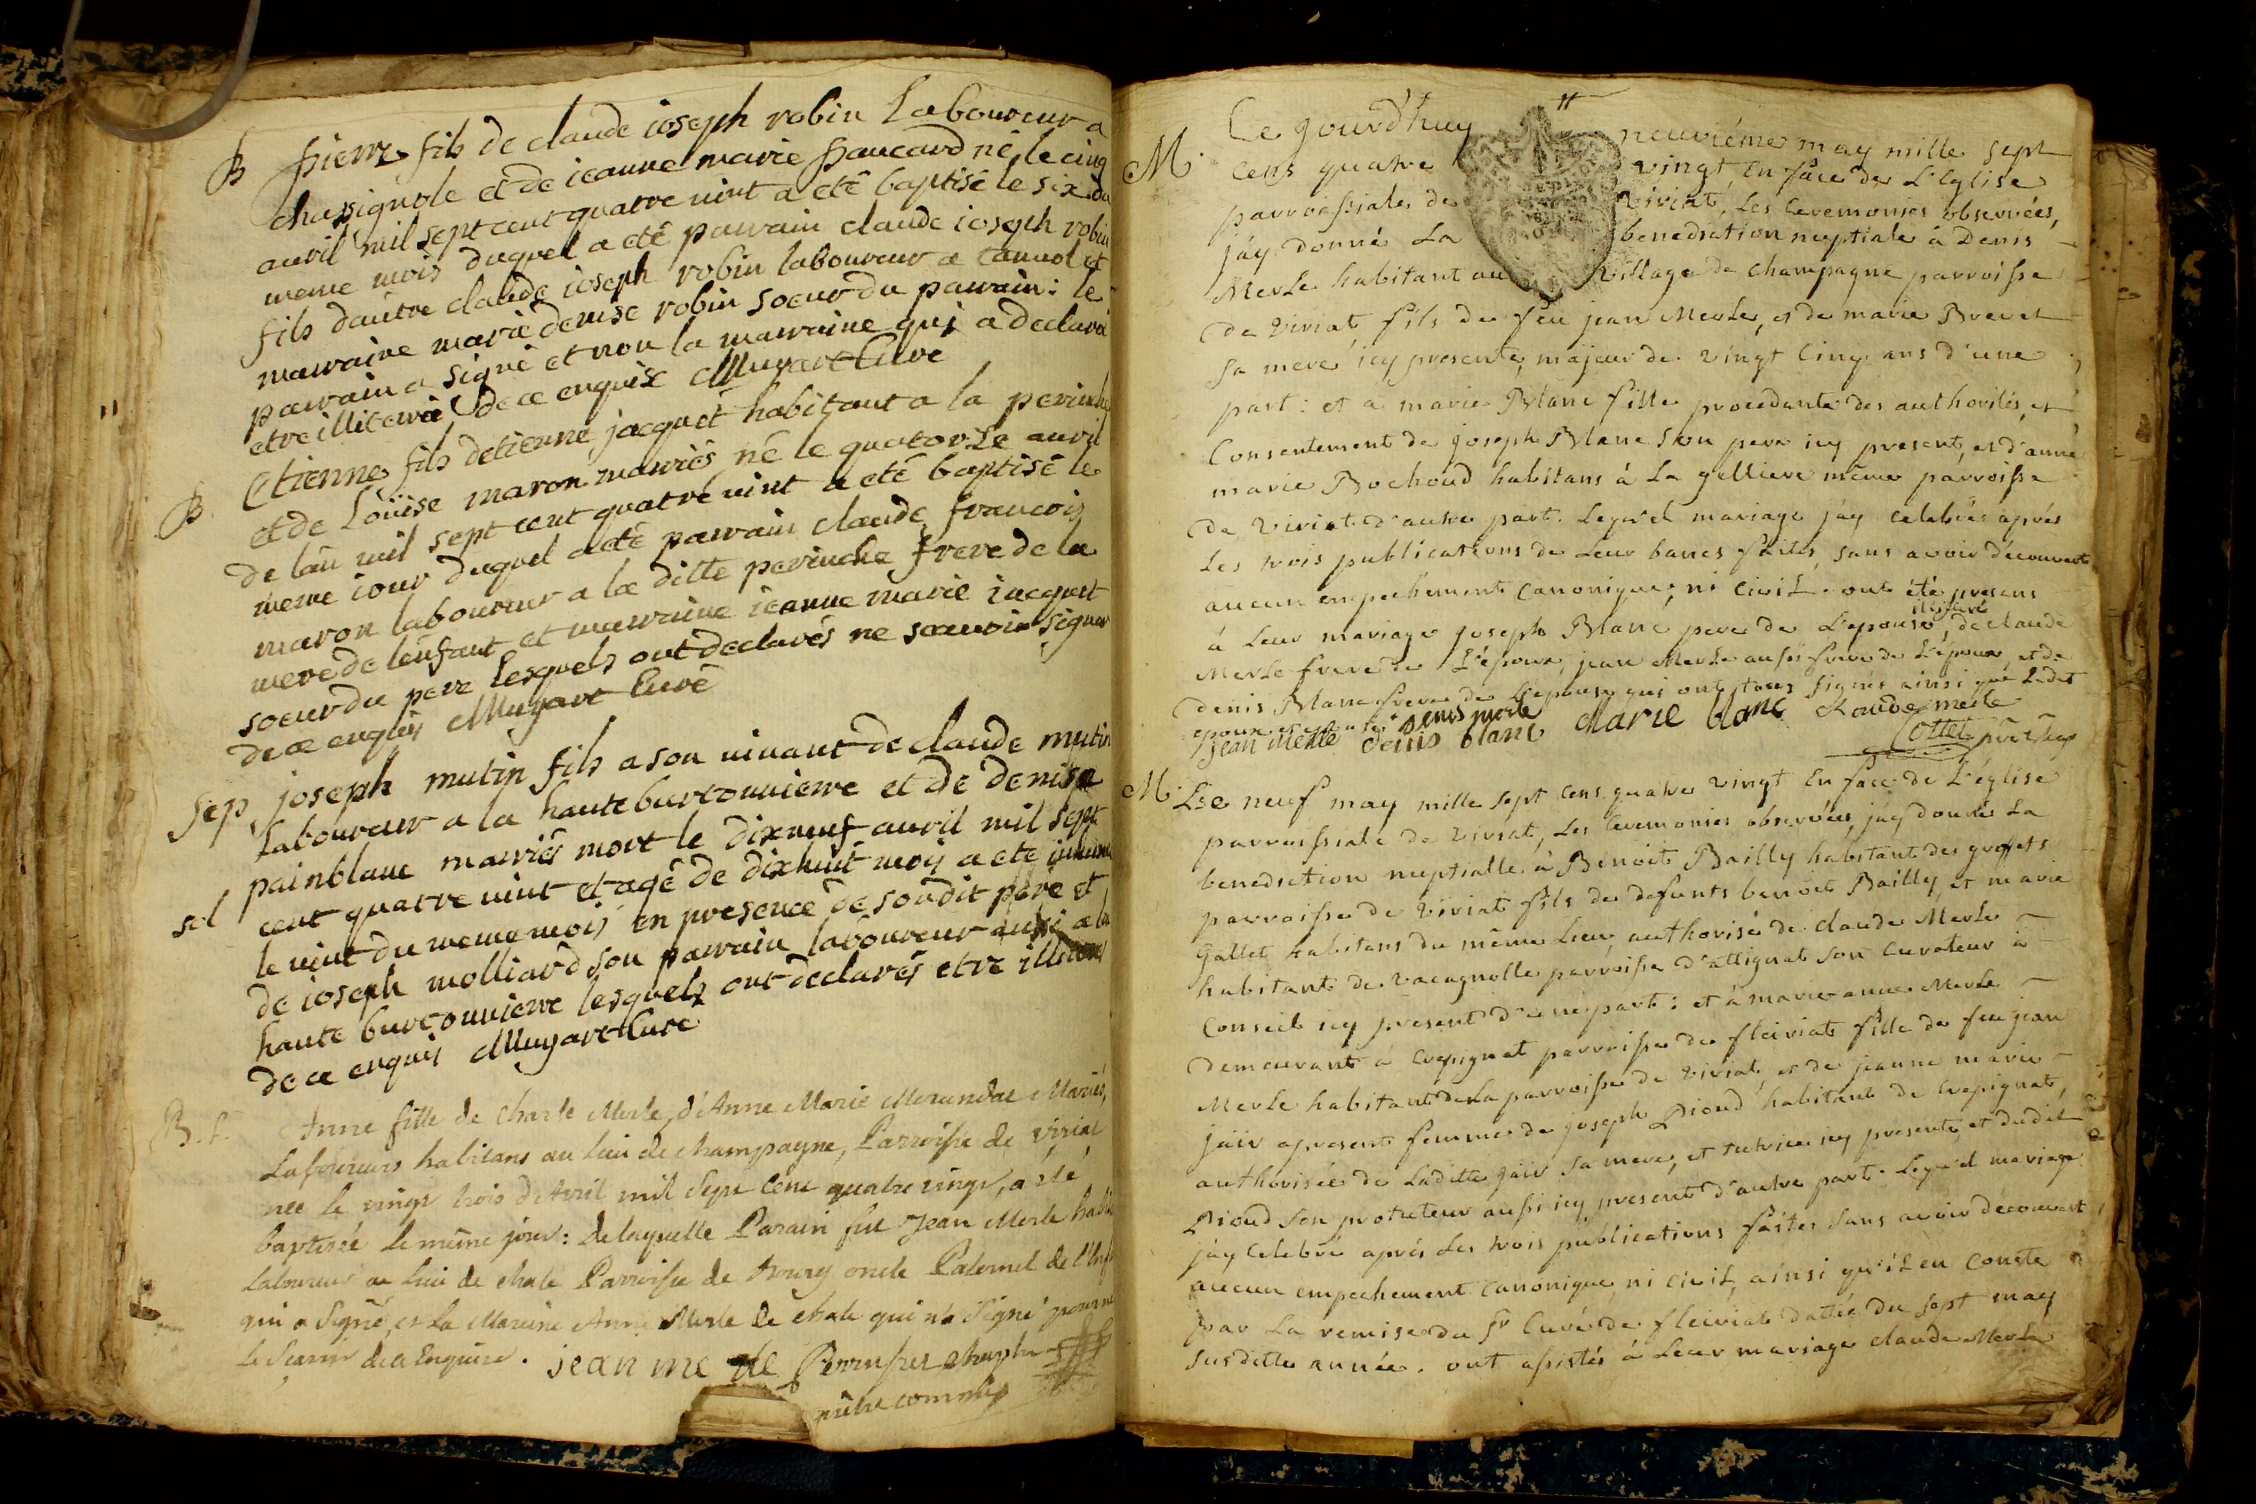 B pierre fils de claude ioseph robin Laboureur a
chassignole et de ieanne marie paucard né le cinq
auril mil sept cent quatre uint a eté baptisé le six du
meme mois duquel a eté parrain claude ioseph robin
fils dautre claude ioseph robin laboureur a tannol et
marraine marie denise robin soeur du parrain: le
parrain a signé et non la marraine qui a declaré
etre illiterée de ce enquise Muyart Curé
B. Etienne fils detienne jacquet habitant a la perinche
et de Loüise maron mariés né le quatorze auril
de lan mil sept cent quatre uint a eté baptisé le
meme iour duquel a eté parrain claude francois
maron laboureur a la ditte perinche frere de la
mere de lenfant et marraine ieanne marie iacquet
soeur du pere lesquels ont declarés ne scavoir signer
de ce enquis Muyart Curé
Sep joseph mutin fils a son uiuant de claude mutin
laboureur a la haute burtonniere et de denise
painblanc mariés mort le dixneuf auril mil sept
sel cent quatre uint et agé de dixhuit moy a ete inhumé
le uint du meme mois en presence de son dit pere et
de ioseph molliard son parrain laboureur aussi a la
haute burtonniere lesquels ont declarés etre
de ce enquis Muyart Curé
B. f. Anne fille de Charle Merle, d'Anne Marie Mariés,
Laboureurs habitans au lieu de champagne, Parroisse de Viriat
née le vingt trois d'Avril mil Sept Cent quatre vingt, a eté
baptisée le même jour: de laquelle Parain fut Jean Merle
Laboureur au lieu de chale Parroisse de oncle Paternel de
qui a Signé, et la Mareine Anne Merle de chale qui n'a Signé pour ne
le Scavoir de ce Enquise. jean merle
prêtre commis
11
M. Ce jourd'huy neuviéme may mille sept
cens quatre vingt en face de L'Eglise
parroissiale de Viriat, Les Ceremonies observées,
j'ay donné La benediction nuptiale à Denis
Merle habitant au village de Champagne parroisse
de Viriat fils de feu jean Merle, et de marie Brevet
sa mere icy presente, majeur de vingt cinq ans d'une
part: et a marie Blanc fille procedante des authorités, et
Consentement de joseph Blanc son pere icy present, et d'anne
marie Bochoud habitans à La gelliere même parroisse
de Viriat d'autre part. Lequel mariage j'ay celebrés aprés
Les trois publications de Leur bancs faites, sans avoir découvert
aucun empechement Canonique, ni Civil. ont été presens
à Leur mariage joseph Blanc pere de L'epouse illiteré, de claude
Merle frere de L'époux, jean Merle aussi frere de L'époux, et de
denis Blanc frere de L'epouse qui ont tous signés ainsi que Ledit
epoux et epouse denis merle
jean merle denis blanc Marie blanc Claude merle
Cottet
M. Le neuf may mille sept cens quatre vingt En face de L'église
parroissiale de Viriat, Les Ceremonies observées, j'ay donné La
benediction nuptialle à Benoit Bailly habitant des groffets
parroisse de Viriat fils de defunts benoit Bailly, et marie
Gallet habitans du même Lieu, authorisé de claude Merle
habitant de vacagnolle parroisse d'attignat son Curateur à
Conseil icy present d'une part: et à marie anne Merle
demeurant à Crepignat parroisse de fleiriat fille de feu jean
Merle habitant de La parroisse de Viriat, et de jeanne marie
jaiir apresent femme de joseph Pioud habitant de Crepignat,
authorisée de Laditte jaiir sa mere, et tutrice icy presente, et dudit
Pioud son protuteur aussi icy present d'autre part. Lequel mariage
j'ay Celebré aprés Les trois publications faites sans avoir découvert
aucun empechement Canonique ni Civil, ainsi qu'il en Conste
par La remise du Sr Curé de fleiriat datée du sept may
susditte année. ont assistés à Leur mariage claude Merle